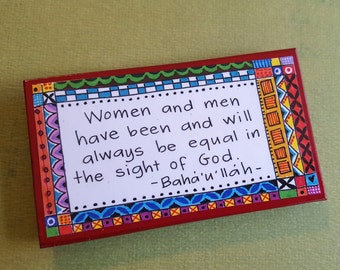 Women and men
have been and will
always be equal in
the sight of God.
-Bahá'u'lláh-